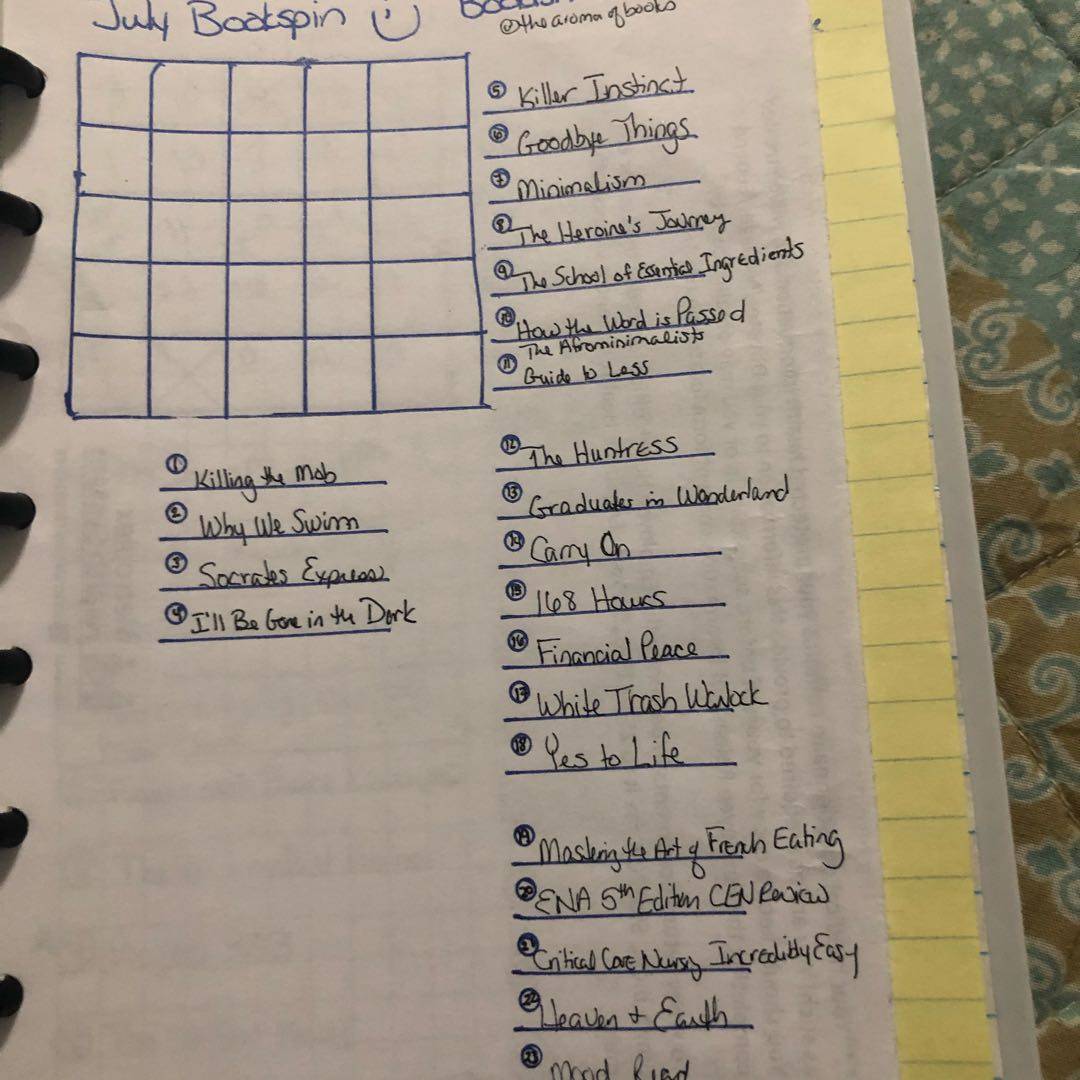 July Bookspin
@thearomaofbooks
5 Killer Instinct
6 Goodbye Things
7 Minimalism
8 The Heroine's Journey
9 The School of Essential Ingredients
10 How the Word is Passed
11 The Afrominimalists
Guide to Less
1 Killing the Mob
2 Why We Swim
3 Socrates Express
4 I'll Be Gone in the Dark
12 The Huntress
13 Graduates in Wonderland
14 Carry On
15 168 Hours
16 Financial Peace
17 White Trash Warlock
18 Yes to Life
19 Mastering the Art of French Eating
20 ENA 5th Edition CEN Review
21 Critical Care Nursing Incredibly Easy
22 Heaven + Earth
23 Mood Read